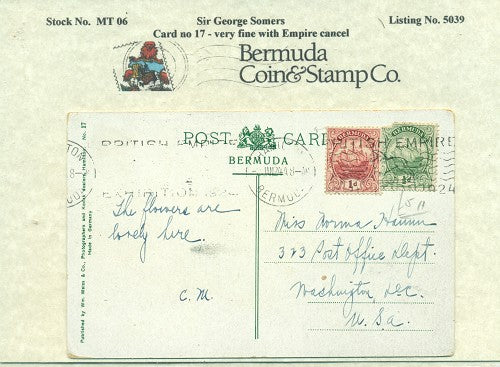 Stock No. MT 06 Sir George Somers Listing No. 5039
Card no 17 - very fine with Empire cancel
Bermuda
Coin&Stamp Co.
POST CARD
BERMUDA
BRITISH EMPIRE
EXHIBITION
BRITISH EMPIRE
1924
BERMUDA
BERMUDA
BERMUDA
1d
The flowers are
lovely here.
C. M.
Miss Norma
323 Post Office Dept.
Washington, D.C.
U. S. a.
Published by Wm. Weiss & Co., Photographers and
Made in Germany
No. 17